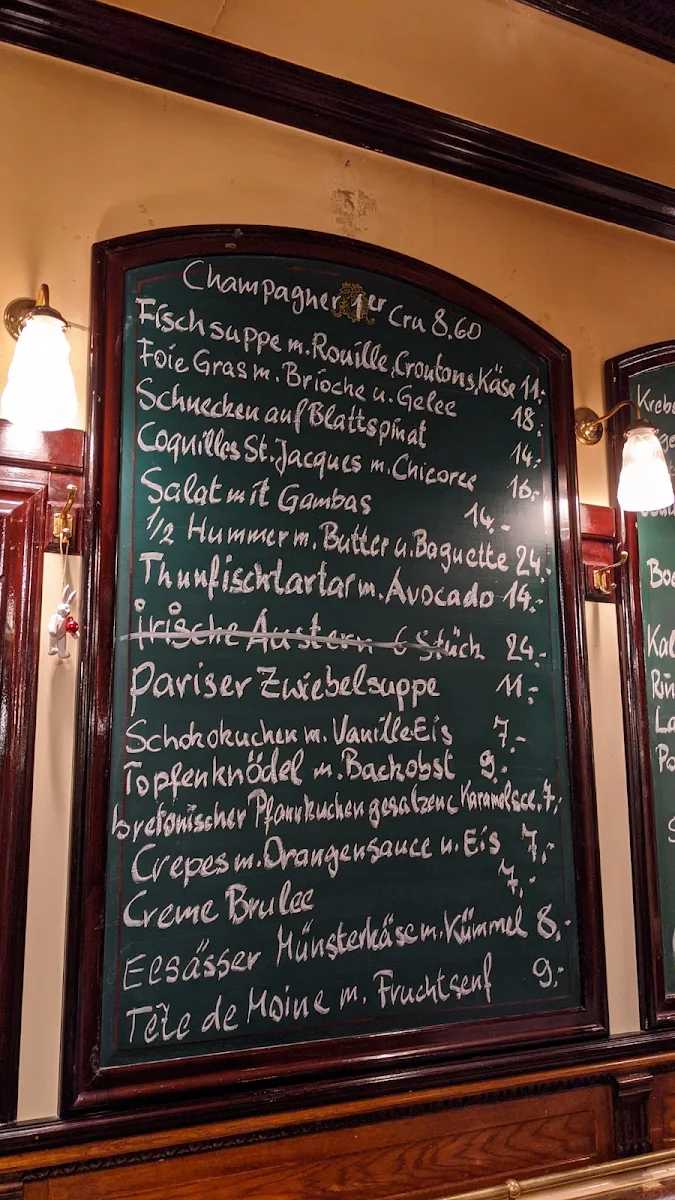 Champagner 1er Cru 8,60
Fischsuppe m. Rouille, Croutons, Käse 11,-
Foie Gras m. Brioche u. Gelee 18,-
Schnecken auf Blattspinat 14,-
Coquilles St. Jacques m. Chicoree 16,-
Salat mit Gambas 14,-
1/2 Hummer m. Butter u. Baguette 24,-
Thunfischtartar m. Avocado 14,-
irische Austern 6 Stück 24,-
Pariser Zwiebelsuppe 11,-
Schokokuchen m. Vanille Eis 7,-
Topfenknödel m. Backobst 9,-
bretonischer Pfannkuchen gesalzene Karamelsce. 7,-
Crepes m. Orangensauce u. Eis 7,-
Creme Brulee 7,-
Elsässer Münsterkäse m. Kümmel 8,-
Tête de Moine m. Fruchtsenf 9,-